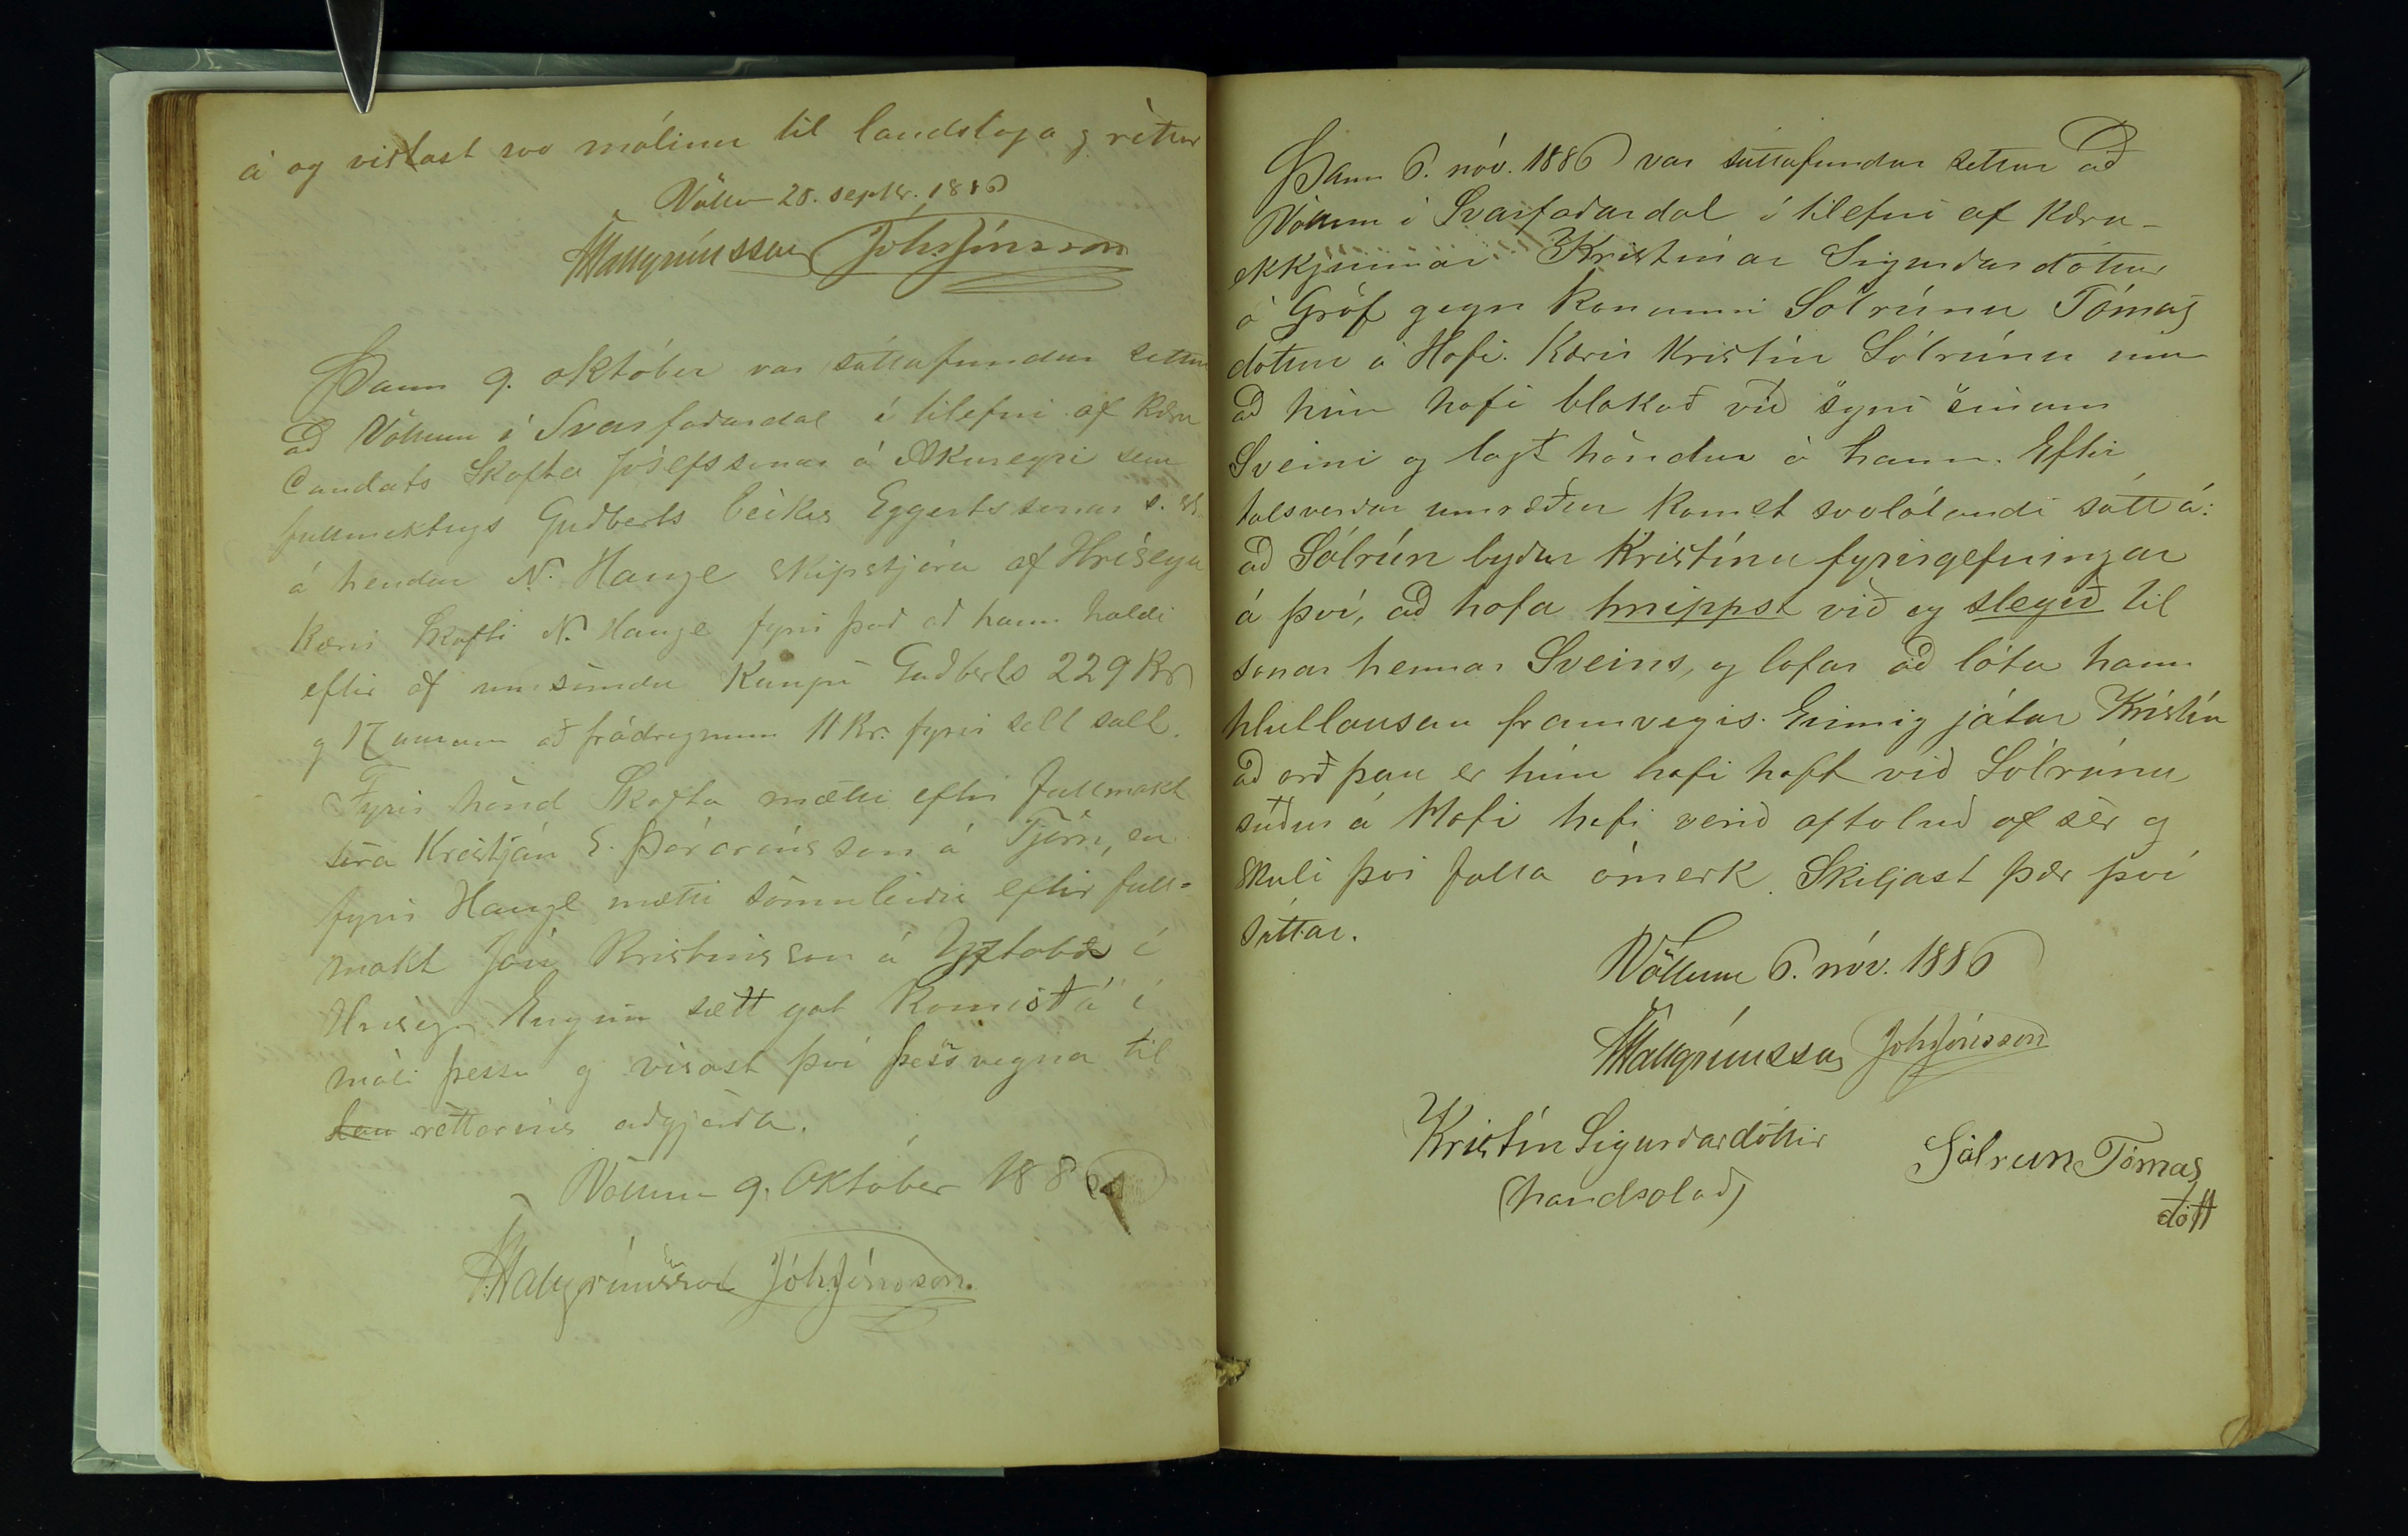 á og vistast svo málinu til landslaga og réttar
Völlum 28. septbr. 1886
T Hallgrímsson Jóh. Jónsson
Þann 9. október var sáttafundur settur
að Völlum í Svarfaðardal í tilefni af kæru
Candats Skafta Jósefssonar á Akureyri sem
fullmektugs Guðberts beikes Eggertssonar s. st.
á hendur N. Hauge skipstjóra af Hrísey
Kærir Skafti N. Hauge fyrir það að hann haldi
eftir af umsömdu kaupi Guðberts 229 Kr
og 17 aurum að frádregnum 11 Kr. fyrir selt salt.
Fyrir hönd Skafta mætti eftir fullmakt
séra Kristján E. Þórarinsson á Tjörn, en
fyrir Hauge mætti sömuleiðis eftir full-
makt Jón Kristinsson á Yztabæ í
Hrísey. Enginn sætt gat komist á í
máli þessu og vísast því þessvegna til
réttarins aðgjörða.
Völlum 9. Október 1886
T. Hallgrímsson Jóh. Jónsson.
Þann 6. nóv. 1886 var sáttafundur settur að
Völlum í Svarfaðardal í tilefni af kæru
ekkjunnar Kristínar Sigurðardóttur
á Gröf gegn konunni Sólrúnu Tómas
dóttur á Hofi. Kærir Kristín Sólrúnu um
að hún hafi blakað við syni sínum
Sveini og lagt höndur á hann. Eftir
talsverðar umræður komst svolátandi sátt á:
að Sólrún byður Kristínu fyrirgefningar
á því, að hafa hnippst við og slegið til
sonar hennar Sveins, og lofar að láta hann
hlutlausan framvegis. Einnig játar Kristín
að orð þau er hún hafi haft við Sólrúnu
suður á Hofi hafi verið oftöluð af sér og
skuli því falla ómerk. Skiljast þær því
sáttar.
Völlum 6. nóv. 1886
T Hallgrímsson Jóh Jónsson
Kristín Sigurðardóttir
(handsalað)
Sólrun Tómas
dótt